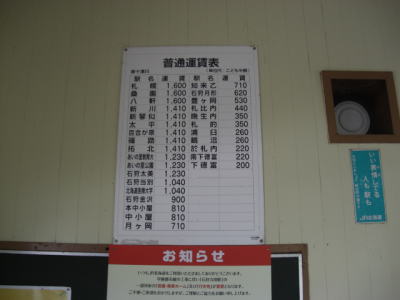 普通運賃表
新十津川
駅名 運賃 駅名 運賃
札幌 1,600 知来乙 710
桑園 1,600 石狩月形 620
八軒 1,600 豊ヶ岡 530
新川 1,410 札比内 440
新琴似 1,410 晩生内 350
太平 1,410 札的 350
百合が原 1,410 浦臼 260
篠路 1,410 鶴沼 260
拓北 1,410 於札内 220
あいの里教育大 1,230 南下徳富 200
あいの里公園 1,230 下徳富 200
石狩太美 1,230
石狩当別 1,040
北海道医療大学 1,040
石狩金沢 900
本中小屋 810
中小屋 810
月ヶ岡 710
お知らせ
いい表情してる
人も駅も
JR北海道